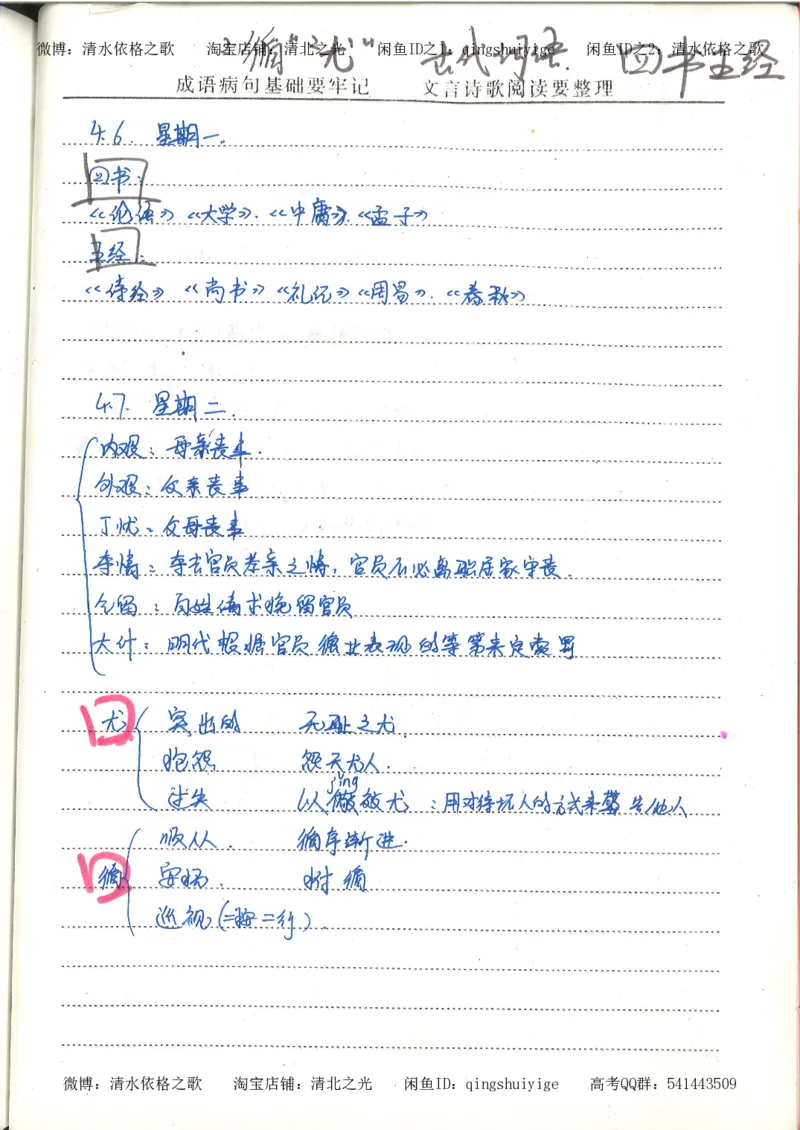 微博：清水依格之歌 淘宝店铺：清北之光 闲鱼ID之1：qingshuiyige 闲鱼ID之2：清水依格之歌
循"尤" 古代词语. 四书五经
成语病句基础要牢记 文言诗歌阅读要整理
4.6. 星期一.
四书：
《论语》《大学》.《中庸》.《孟子》
五经：
《诗经》《尚书》《礼记》《周易》.《春秋》
4.7. 星期二.
内艰：母亲丧事.
外艰：父亲丧事
丁忧：父母丧事
夺情：夺去官员孝亲之情，官员不必离职居家守丧.
乞留：百姓请求挽留官员
大计：明代根据官员 业表现的等第来定
尤 突出的 无耻之尤
抱怨 怨天尤人.
jǐng
过失 以儆效尤：用对待坏人的方式来警告他人
顺从. 循序渐进.
循 安抚. 拊循
巡视(=梅=行).
微博：清水依格之歌 淘宝店铺：清北之光 闲鱼ID：qingshuiyige 高考QQ群：541443509